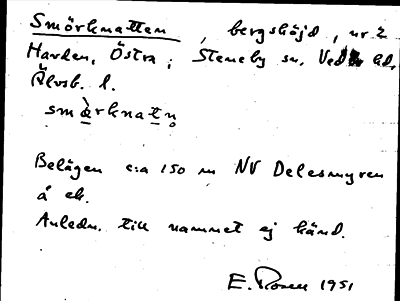 Smörknatten, bergshöjd, nr 2
Harden, Östra; Steneby sn, Vedbo hd,
Älvsb. l.
smö̀rknatn̥
Belägen c:a 150 m NV Delesmyren
å ek.
Anledn. till namnet ej känd.
E. Rosen 1951